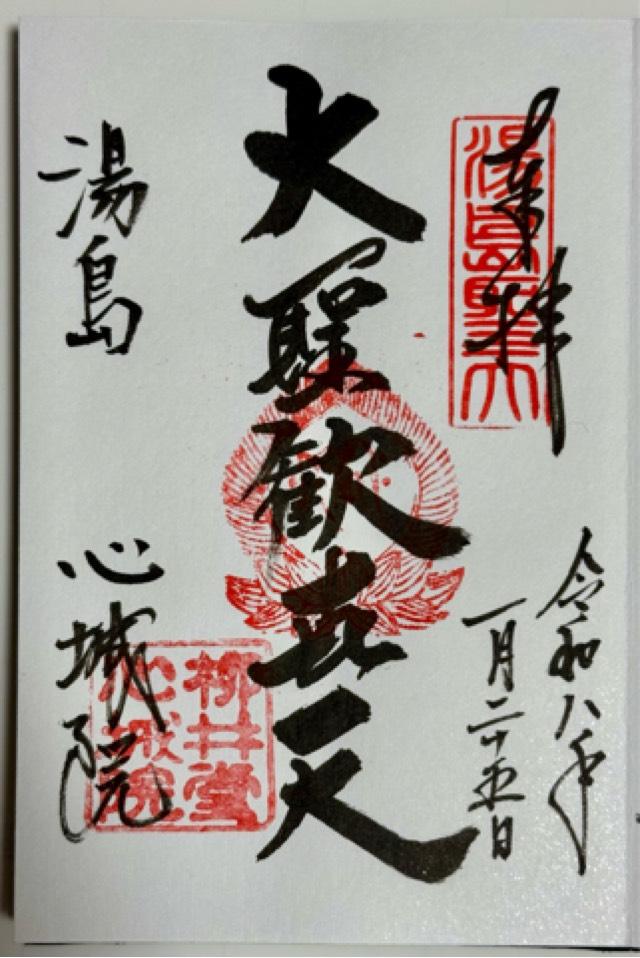 奉拝
湯島聖天
令和八年
一月二十五日
大聖歓喜天
湯島
心城院
柳井堂
心城院